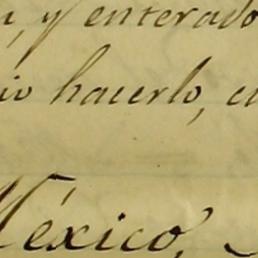 y enterado
hacerlo,
México,